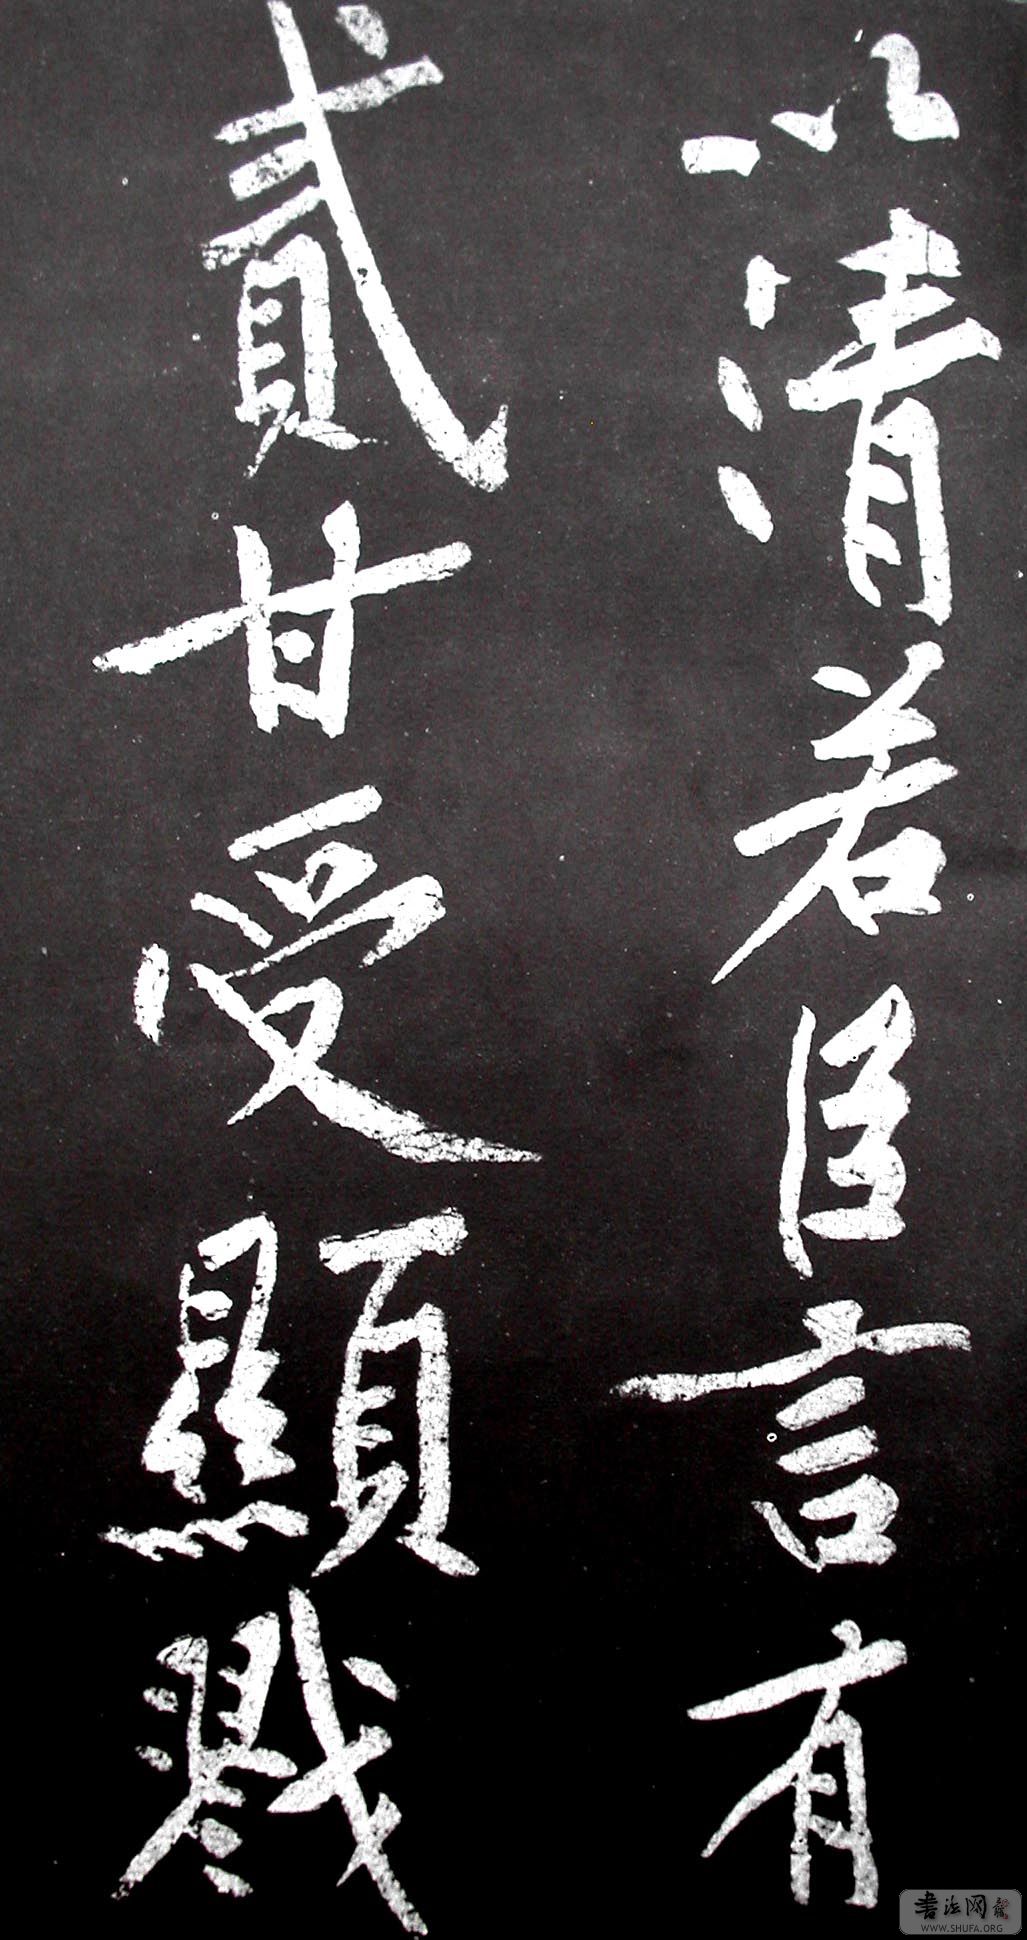 以清若臣言有
貳甘受顯戮
书法网
WWW.SHUFA.ORG